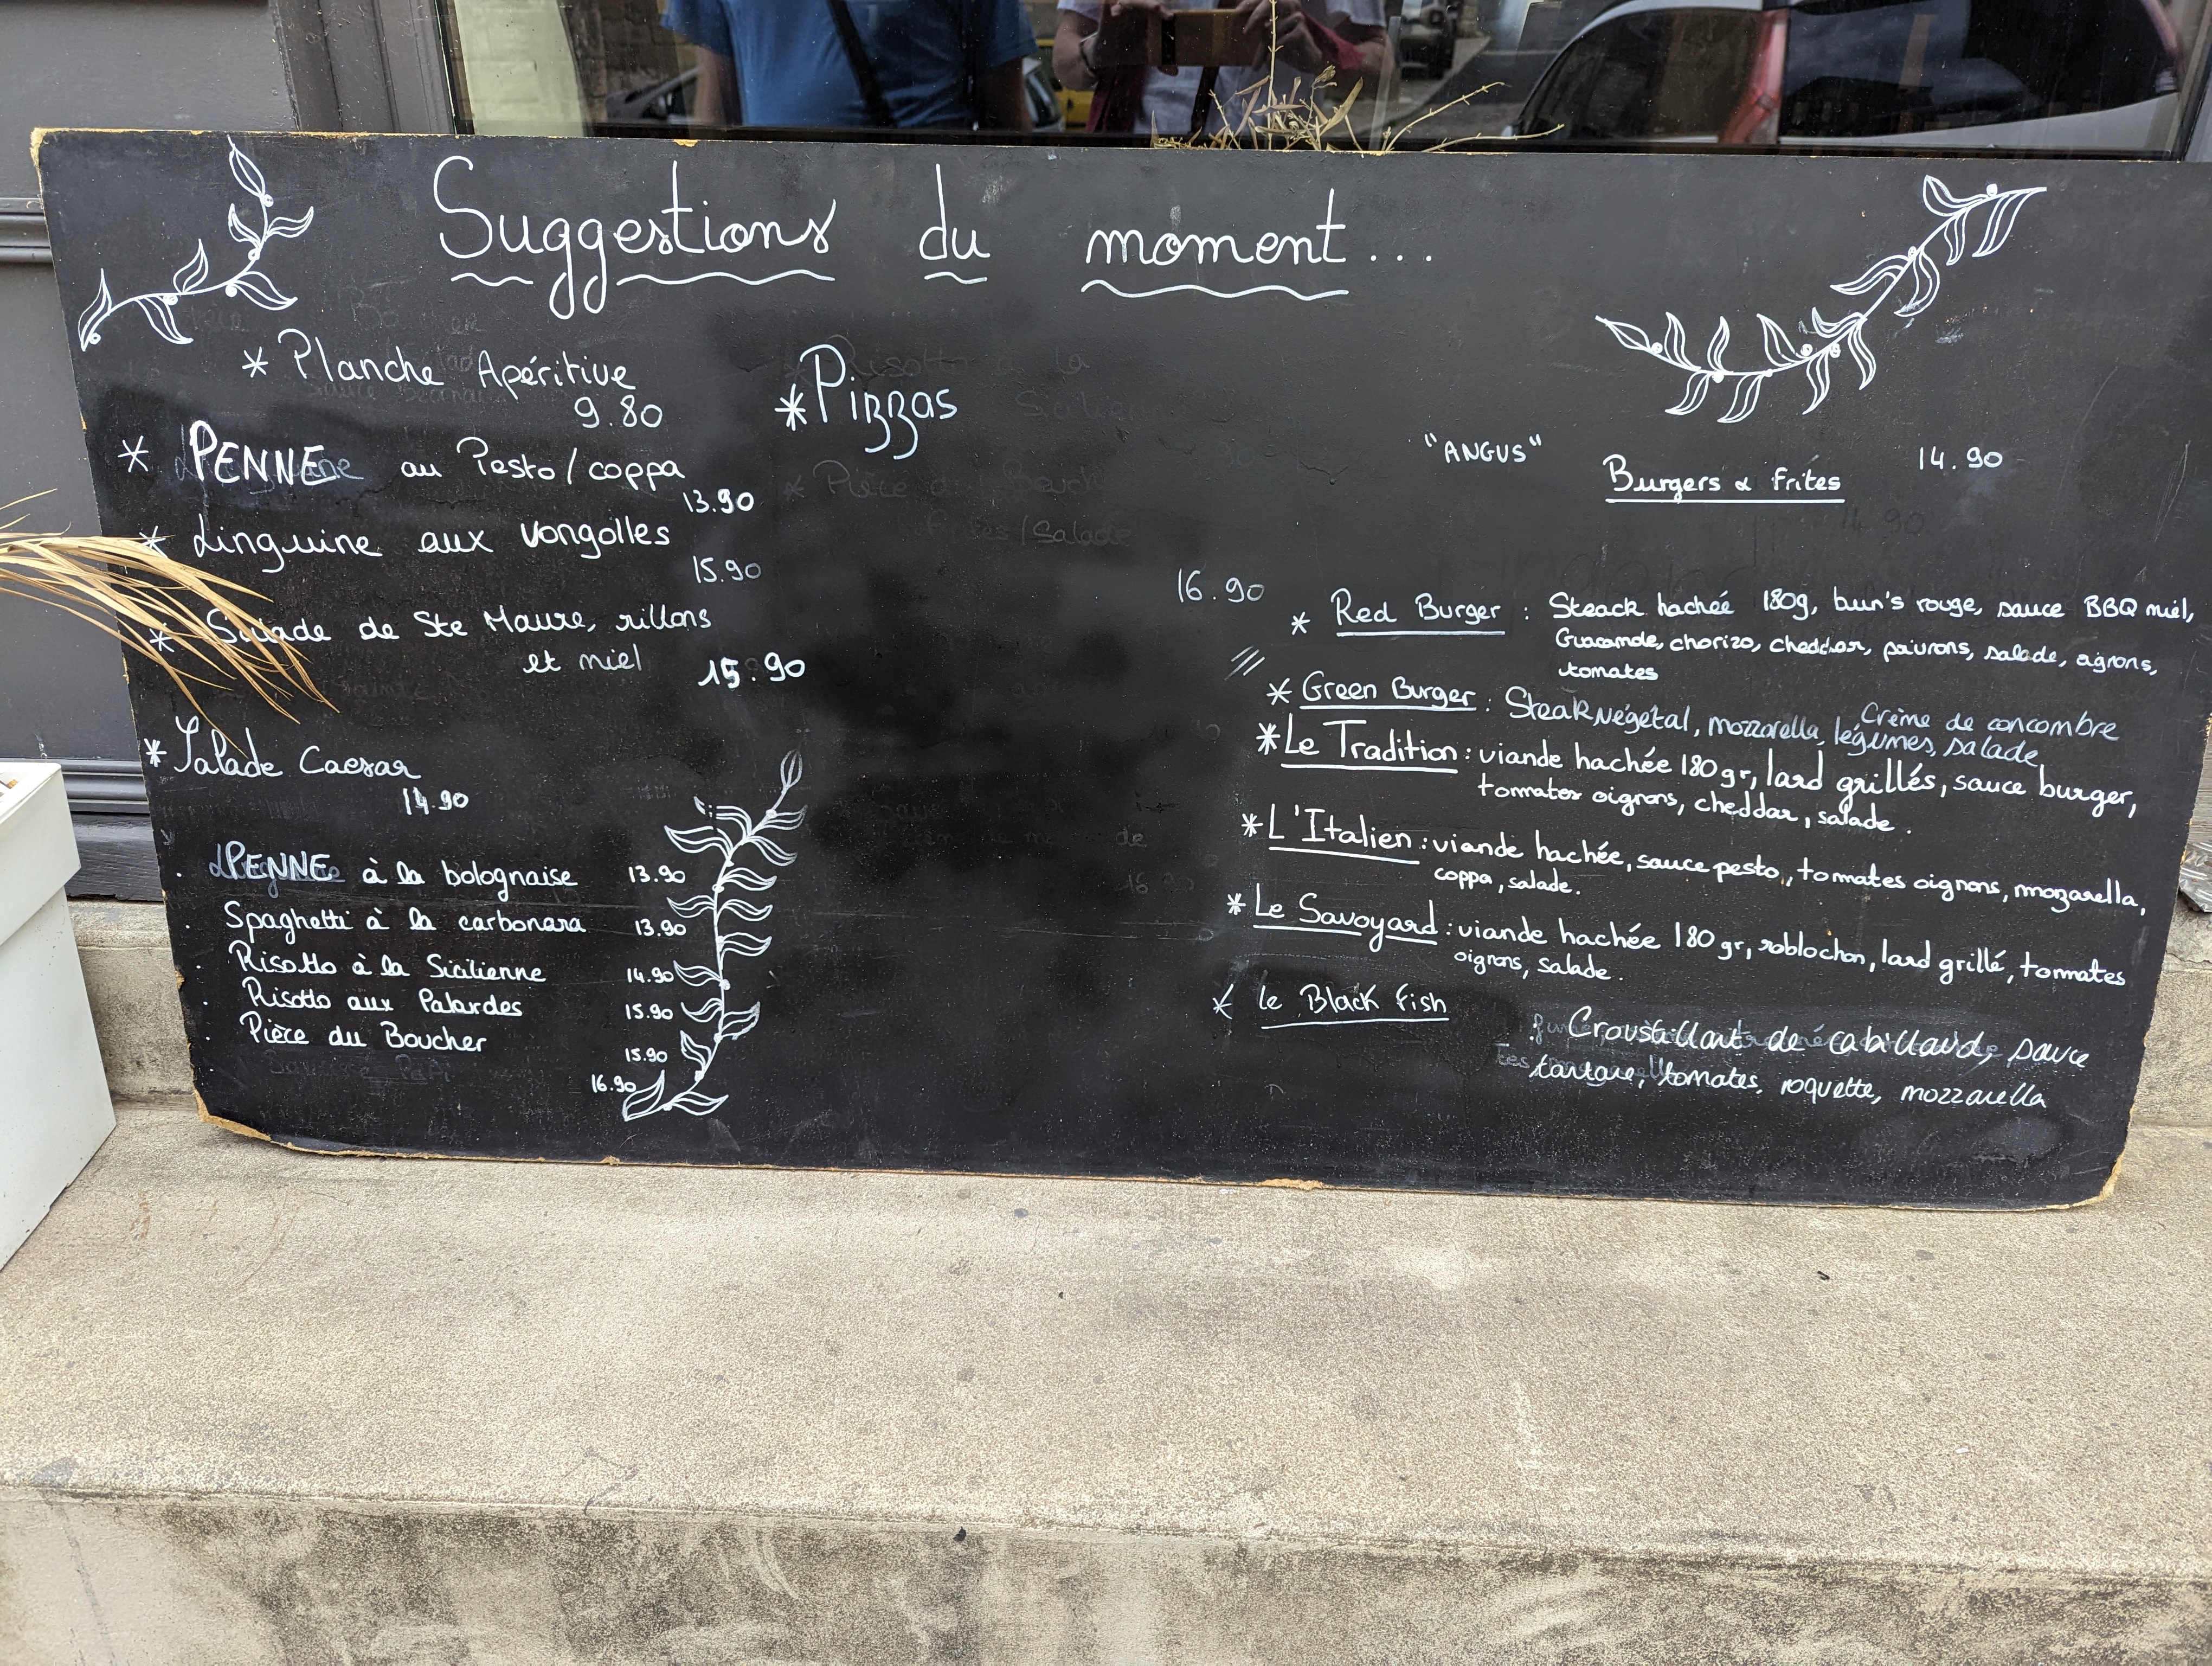 Suggestions du moment...
* Planche Apéritive
9.80
* PENNE au Pesto/coppa
13.90
* Linguine aux vongolles
15.90
* Salade de Ste Maure, rillons
et miel 15.90
* Salade Caesar
14.90
. PENNE à la bolognaise 13.90
. Spaghetti à la carbonara 13.90
. Risotto à la Sicilienne 14.90
. Risotto aux Palourdes 15.90
. Pièce du Boucher 15.90
16.90
* Pizzas
"ANGUS" 14.90
Burgers & Frites
16.90
* Red Burger : Steack hachée 180g, bun's rouge, sauce BBQ miel,
Guacamole, chorizo, cheddar, poivrons, salade, oignons,
tomates
* Green Burger : Steak Végétal, mozzarella, légumes, salade, Crème de concombre
* Le Tradition : viande hachée 180 gr, lard grillés, sauce burger,
tomates oignons, cheddar, salade.
* L'Italien : viande hachée, sauce pesto, tomates oignons, mozarella,
coppa, salade.
* Le Savoyard : viande hachée 180 gr, roblochon, lard grillé, tomates
oignons, salade.
* le Black Fish Croustillant de cabillaud, sauce
tartare, tomates, roquette, mozzarella